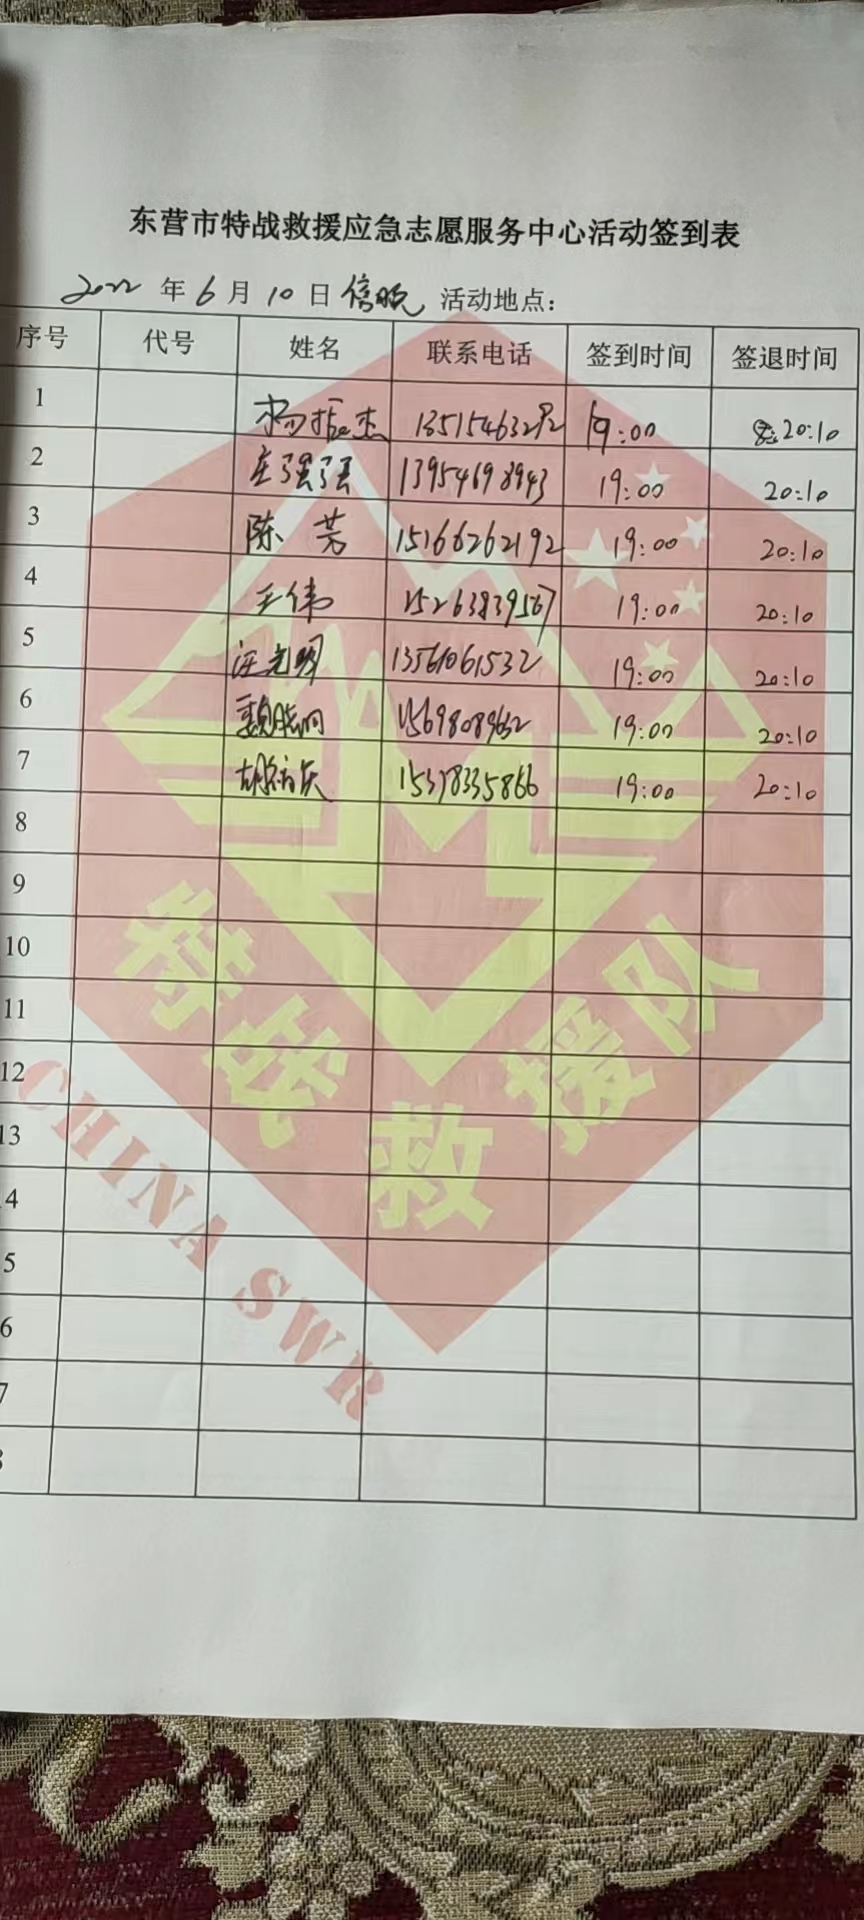 东营市特战救援应急志愿服务中心活动签到表
2022 年 6 月 10 日 活动地点：
序号 代号 姓名 联系电话 签到时间 签退时间
1 杨振杰 13515463292 19:00 20:10
2 庄强强 13954698943 19:00 20:10
3 陈芳 15166262192 19:00 20:10
4 王伟 15263839567 19:00 20:10
5 汪光明 13561061532 19:00 20:10
6 15698089632 19:00 20:10
7 15378335866 19:00 20:10
8
9
10
11
12
13
4
5
6
7
特战救援队
CHINA SWR